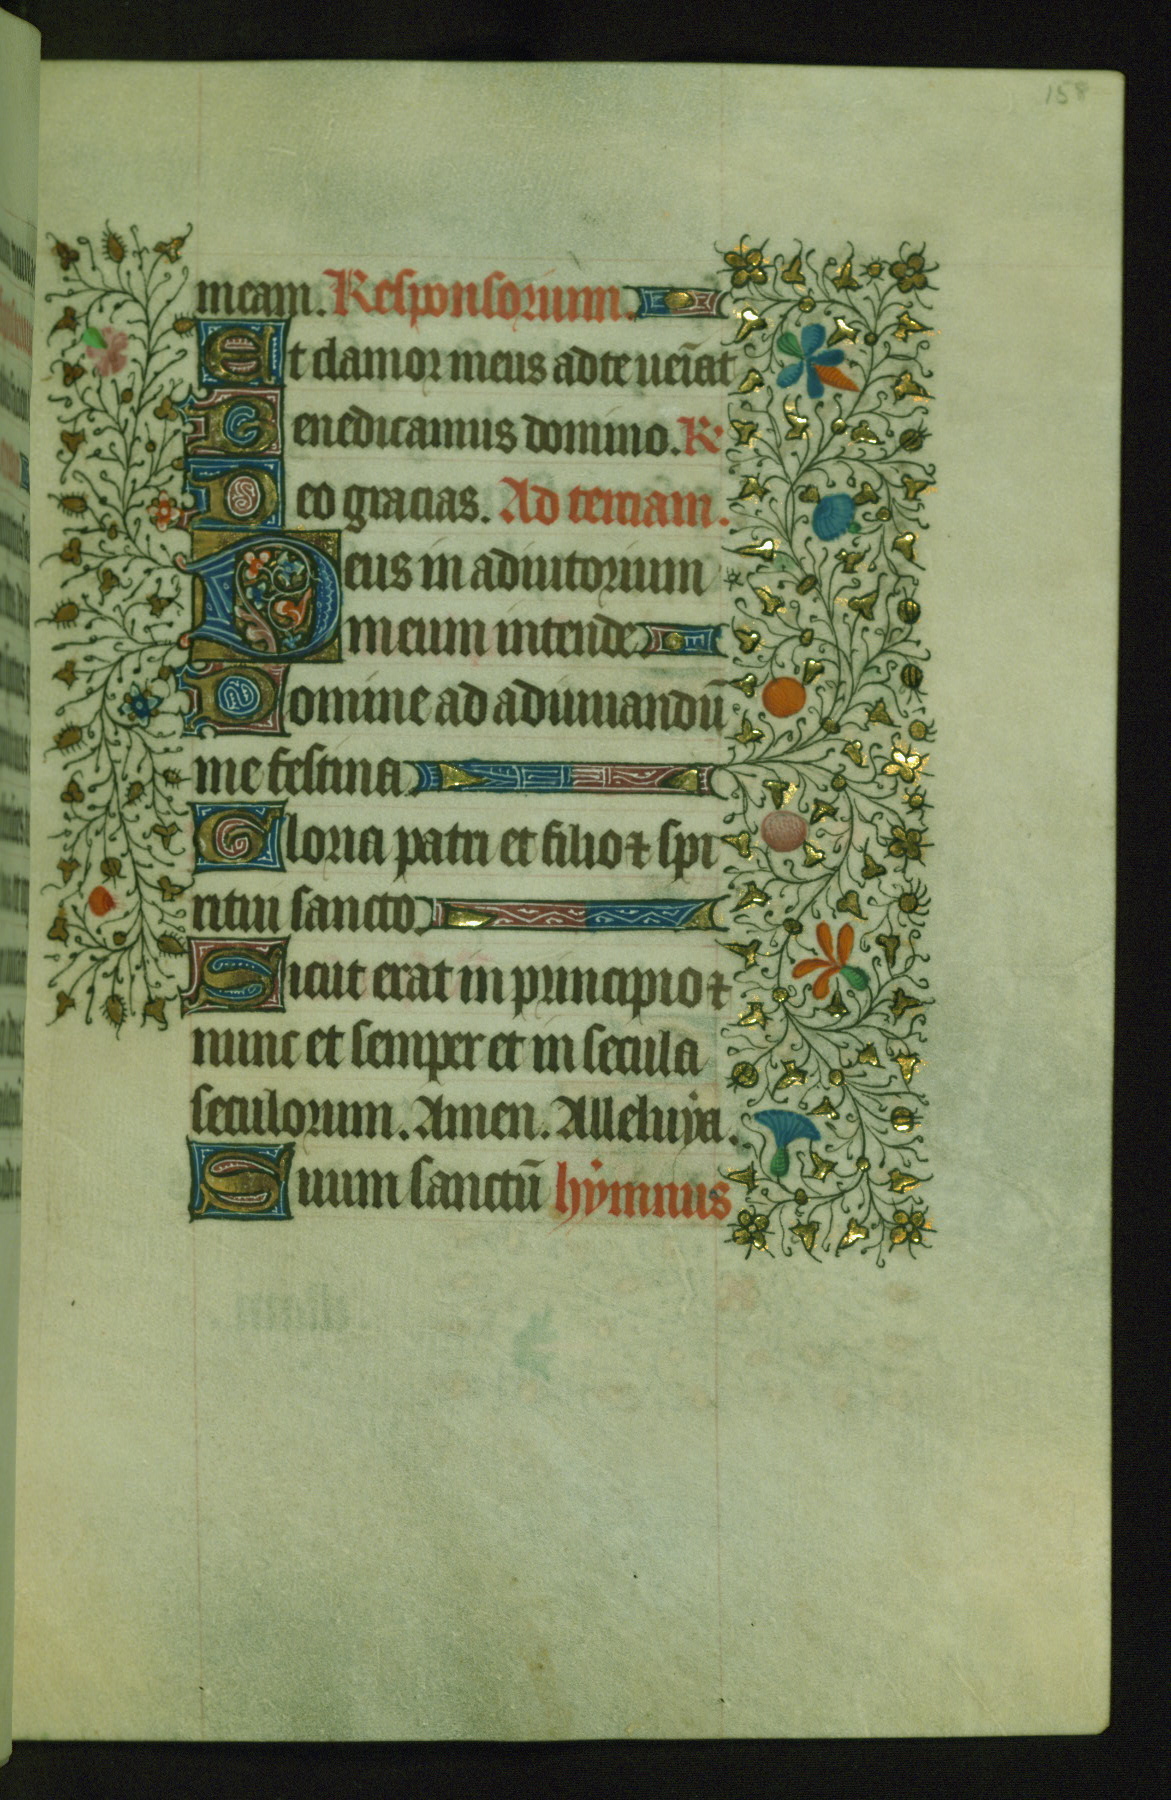 158
meam. Responsorium.
Et clamor meus ad te ueīat
Benedicamus domino. R
Deo gracias. Ad terciam.
Deus in adiutorium
meum intende
Domine ad adiuuandū
me festina
Gloria patri et filio ⁊ spi
ritui sancto
Sicut erat in principio ⁊
nunc et semper et in secula
seculorum. Amen. Alleluya.
Cuum sanctū hymnus